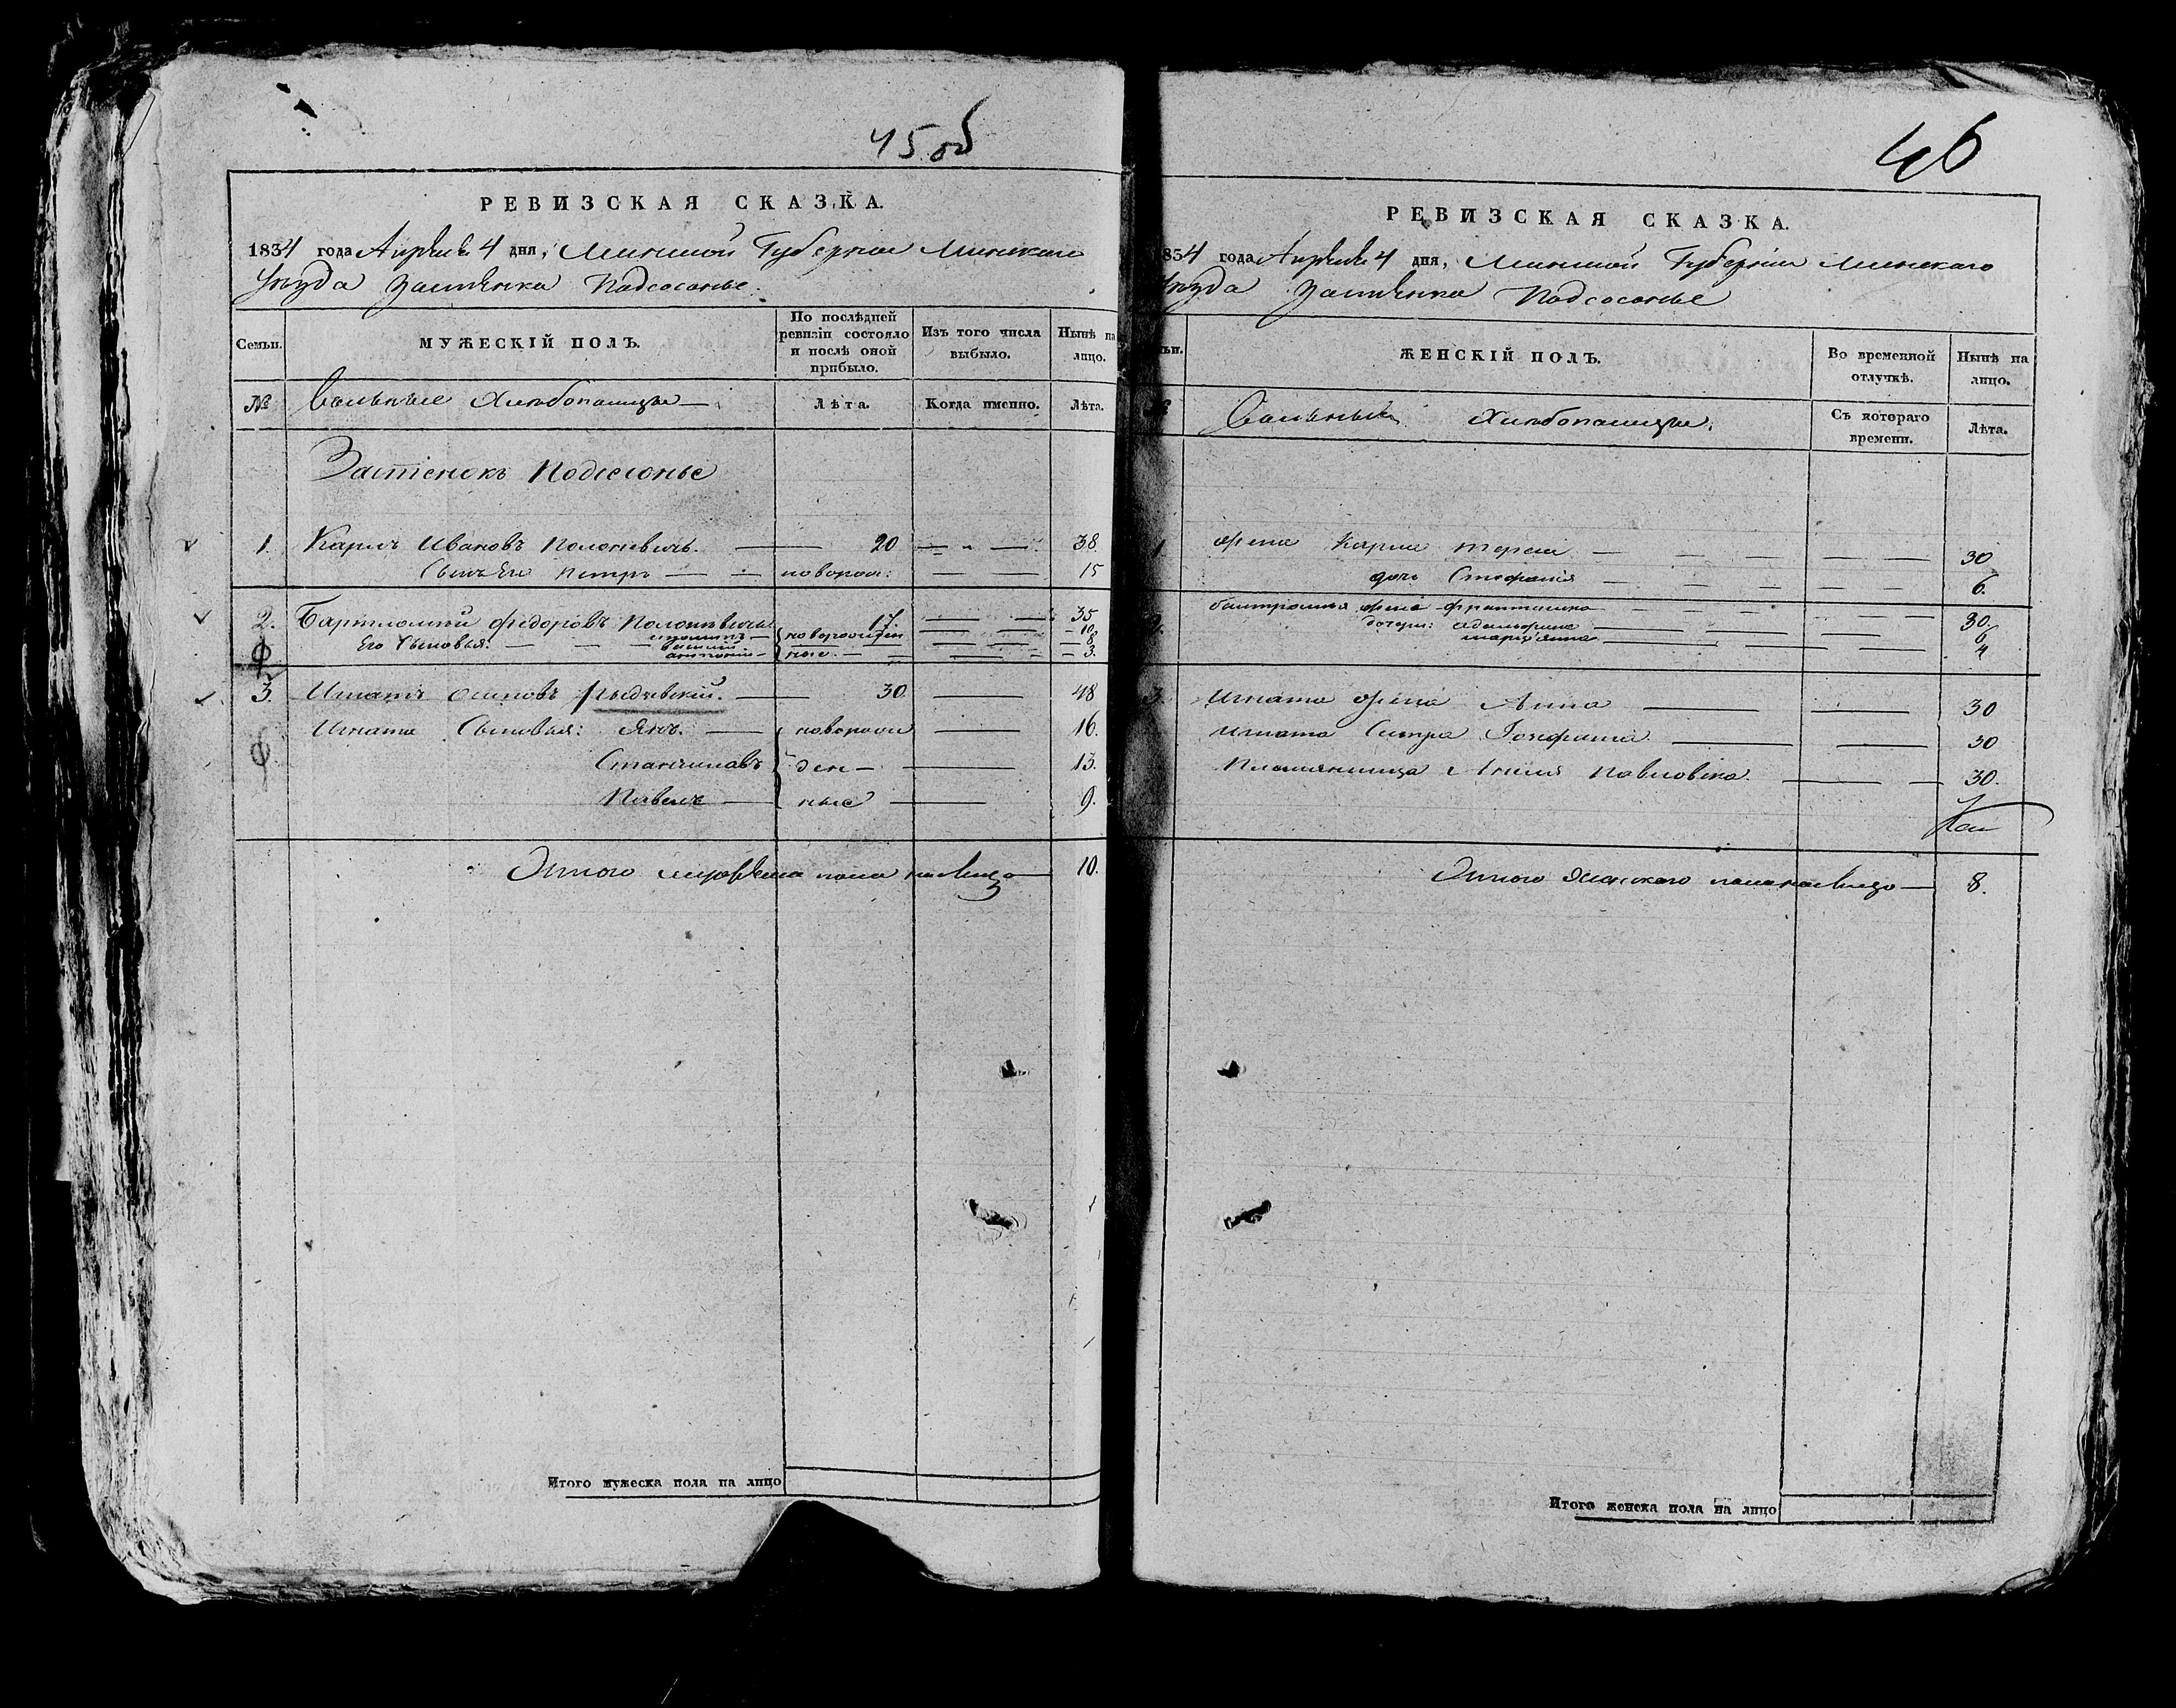 45 об
РЕВИЗСКАЯ СКАЗКА.
1834 года Апреля 4 дня, Минской Губернии Минского
Уезда Застенка Подсосонье.
Семьи.
МУЖЕСКІЙ ПОЛЪ.
По послѣдней ревизіи состояло и послѣ оной прибыло.
Изъ того числа выбыло.
Нынѣ на лицо.
№
Вольные Хлебопашцы
Лѣта.
Когда именно.
Лѣта.
Застенокъ Подсосонье
1. Карлъ Ивановъ Полоневичь. 20 38.
Сынъ Его Петръ новорож: 15
2. Бартломей Федоровъ 17. 35
Его Сыновья: новорожден 10
8
Антоній ные. 3.
3. Игнатъ Осиповъ 30. 48
Игната Сыновья: Янъ. новорож 16.
Станиславъ ден 13.
Павелъ ные 9.
Итого мужеска пола на лицо 10.
Итого мужеска пола на лицо
46
РЕВИЗСКАЯ СКАЗКА.
834 года Апреля 4 дня, Минской Губерніи Минскаго
Уезда Застенка Подсосонье
ьи.
ЖЕНСКІЙ ПОЛЪ.
Во временной отлучкѣ.
Нынѣ на лицо.
№
Вольные Хлебопашцы.
Съ котораго времени.
Лѣта.
1. Жена Карла Тересія 30
дочь Стефанія 6.
2. Бартломея жена Францишка 30.
дочери: 6
Маріянна 4
3. Игната жена Анна 30
Игната Сестра 30
Племянница Павловна. 30.
Итого Женского пола на лицо 8.
Итого женска пола на лицо